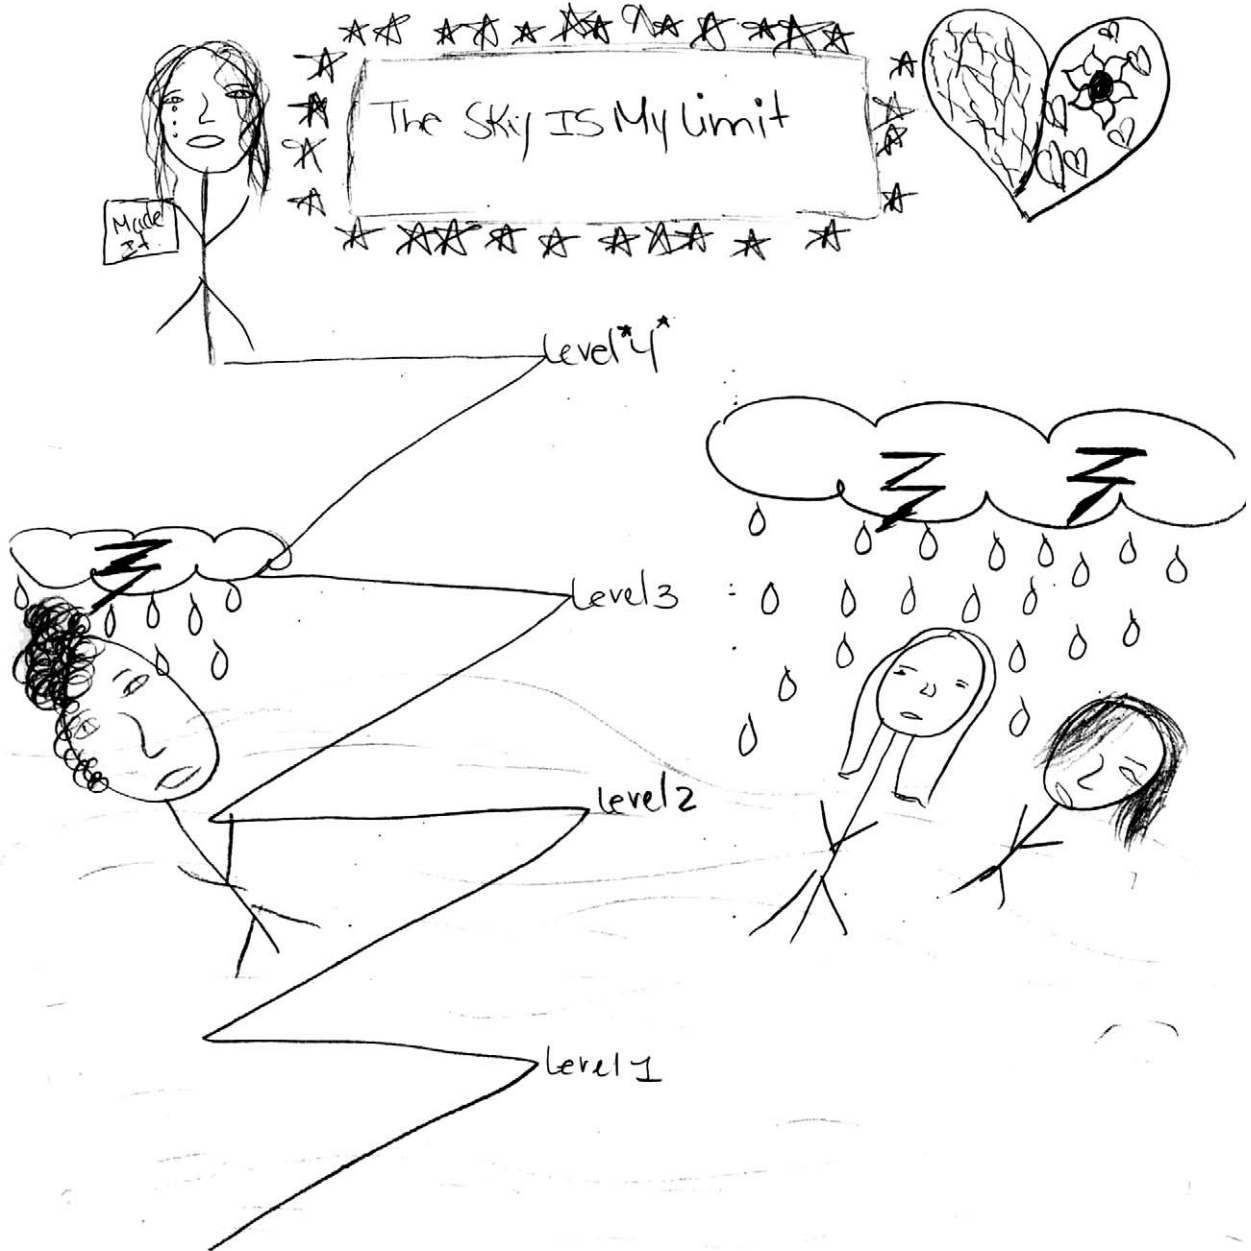 The Sky IS My Limit
Made
It.
Level *4*
Level 3
Level 2
Level 1